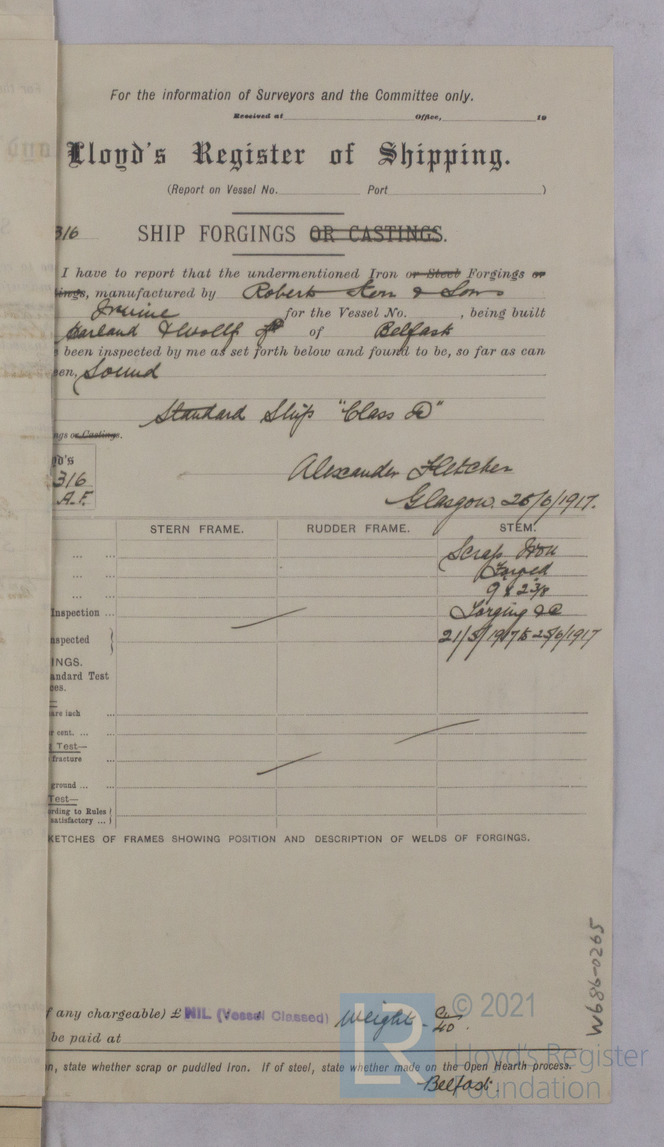 For the information of Surveyors and the Committee only.
Received at Office, 19
Lloyd's Register of Shipping.
(Report on Vessel No. Port )
316 SHIP FORGINGS OR CASTINGS.
I have to report that the undermentioned Iron or Steel Forgings or
tings, manufactured by Robert Kerr & Sons
Irvine for the Vessel No. , being built
Harland & Wolff Ld of Belfast
been inspected by me as set forth below and found to be, so far as can
een, Sound
Standard Ship "Class D"
ngs or Castings.
yd's
316
A.F.
Alexander Fletcher
Glasgow. 25/6/1917.
STERN FRAME. RUDDER FRAME. STEM.
... ... Scrap Iron
... ... Forged
... ... 9 x 2 3/8
Inspection ... Forging &c
nspected } 21/5/1917 to 25/6/1917
INGS.
andard Test
ces.
are inch ...
r cent. ... ...
Test—
fracture ...
ground ... ...
Test—
ording to Rules }
satisfactory ... }
KETCHES OF FRAMES SHOWING POSITION AND DESCRIPTION OF WELDS OF FORGINGS.
W686-0265
f any chargeable) £ NIL (Vessel Classed) Weight - Cw 40.
be paid at
on, state whether scrap or puddled Iron. If of steel, state whether made on the Open Hearth process.
Belfast.
LR © 2021
Lloyd's Register
Foundation